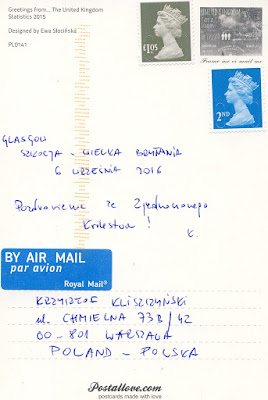 Greetings from... The United Kingdom
Statistics 2015
Designed by Ewa Słosińska
PL0141
£1.05
Frame me or mail me
2ND
GLASGOW
SZKOCJA - WIELKA BRYTANIA
6 WRZEŚNIA 2016
Pozdrowienia ze Zjednoczonego
Królestwa!
K.
BY AIR MAIL
par avion
Royal Mail®
KRZYSZTOF KLISZCZYŃSKI
ul. CHMIELNA 73B/42
00-801 WARSZAWA
POLAND - POLSKA
Postallove.com
postcards made with love